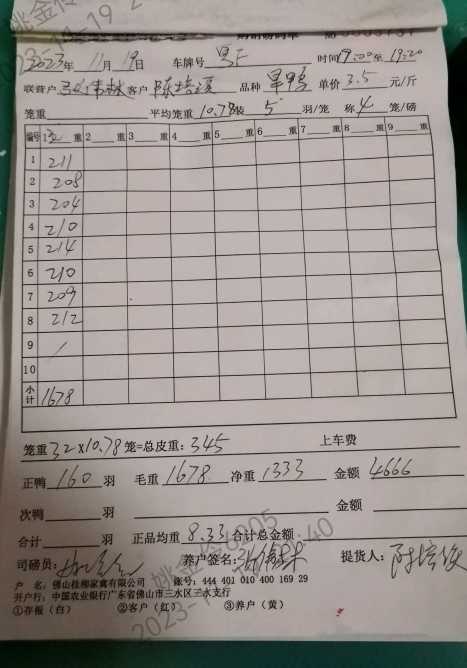 2023年 11月 19日 车牌号 时间19:00至 19:20
联营户 客户 品种 旱鸭 单价 3.5 元/斤
笼重 平均笼重 10.78 装 5 羽/笼 称 4 笼/磅
编号 1 32 重 2 重 3 重 4 重 5 重 6 重 7 重 8 重 9 重
1 211
2 208
3 204
4 210
5 214
6 210
7 209
8 212
9 /
10
小计 1678
笼重 32×10.78 笼=总皮重: 345 上车费
正鸭 160 羽 毛重 1678 净重 1333 金额 4666
次鸭 羽 金额
合计 羽 正品均重 8.33 合计总金额
司磅员: 养户签名: 提货人:
户 名: 佛山桂柳家禽有限公司 账号: 444 401 010 400 169 29
开户行: 中国农业银行广东省佛山市三水区三水支行
①存根 (白) ②客户 (红) ③养户 (黄)